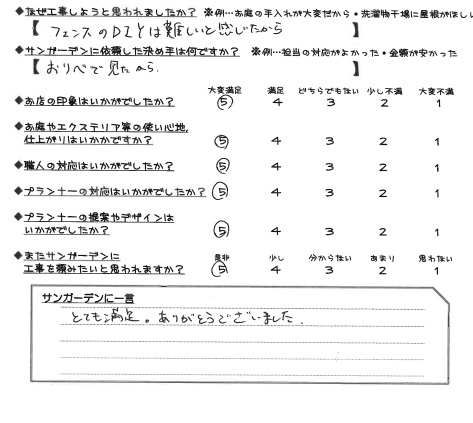 ◆なぜ工事しようと思われましたか？ ※例…お庭の手入れが大変だから・洗濯物干場に屋根がほしい
【 フェンスのDIYは難しいと感じたから 】
◆サンガーデンに依頼した決め手は何ですか？ ※例…担当の対応がよかった・金額が安かった
【 おりべで見たから. 】
大変満足 満足 どちらでもない 少し不満 大変不満
◆お店の印象はいかがでしたか？ 5 4 3 2 1
◆お庭やエクステリア等の使い心地,
仕上がりはいかかですか？ 5 4 3 2 1
◆職人の対応はいかがでしたか？ 5 4 3 2 1
◆プランナーの対応はいかがでしたか？ 5 4 3 2 1
◆プランナーの提案やデザインは
いかがでしたか？ 5 4 3 2 1
◆またサンガーデンに 是非 少し 分からない あまり 思わない
工事を頼みたいと思われますか？ 5 4 3 2 1
サンガーデンに一言
とても満足。ありがとうございました.